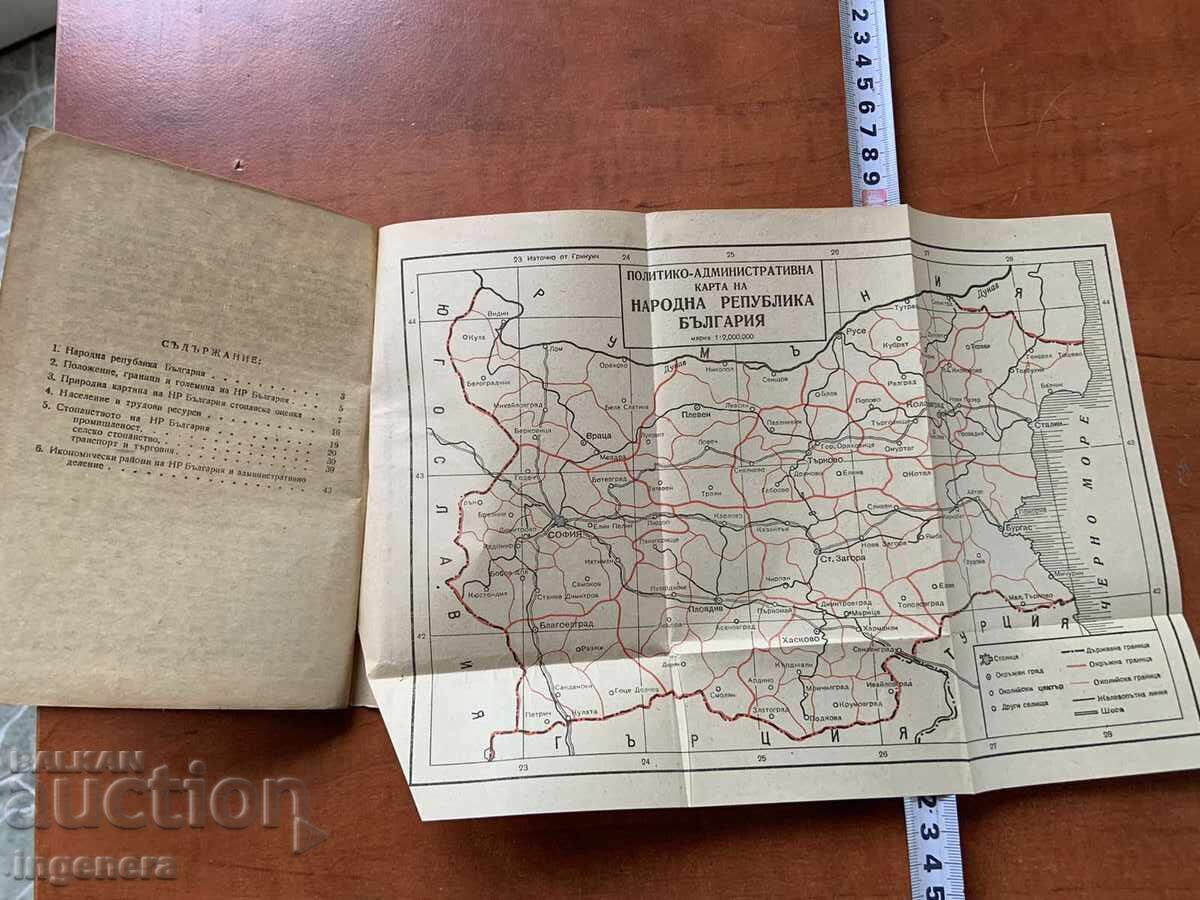 СЪДЪРЖАНИЕ:
1. Народна република България
2. Положение, граници и големина на НР България 3
3. Природна картина на НР България стопанска оценка 5
4. Население и трудови ресурси 7
5. Стопанството на НР България 16
промишленост, 19
селско стопанство, 20
транспорт и търговия 30
6. Икономически райони на НР България и административно 39
деление 43
ПОЛИТИКО-АДМИНИСТРАТИВНА
КАРТА НА
НАРОДНА РЕПУБЛИКА
БЪЛГАРИЯ
мярка 1:2,000,000
23 Източно от Гринуич 24 25 26 27 28
РУМЪНИЯ
ЮГОСЛАВИЯ
ГЪРЦИЯ
ТУРЦИЯ
ЧЕРНО МОРЕ
Дунав
Дунав
Видин
Кула
Лом
Оряхово
Никопол
Свищов
Русе
Тутракан
Кубрат
Белоградчик
Михайловград
Бяла Слатина
Плевен
Левски
Бяла
Попово
Разград
Коларовград
Нови Пазар
Толбухин
Балчик
Сталин
Берковица
Враца
Мездра
Луковит
Ловеч
Павликени
Гор. Оряховица
Търговище
Омуртаг
Провадия
Ботевград
Тетевен
Троян
Севлиево
Габрово
Търново
Дряново
Елена
Котел
Айтос
Карнобат
Бургас
Годеч
Трън
Брезник
Димитрово
СОФИЯ
Елин Пелин
Пирдоп
Карлово
Казанлък
Сливен
Нова Загора
Ямбол
Грудово
Мичурин
Радомир
Ихтиман
Панагюрище
Ст. Загора
Чирпан
Елхово
Мал. Търново
Бобов Дол
Кюстендил
Самоков
Станке Димитров
Пазарджик
Пловдив
Първомай
Димитровград
Марица
Тополовград
Благоевград
Асеновград
Хасково
Харманли
Свиленград
Разлог
Девин
Сандански
Гоце Делчев
Смолян
Ардино
Кърджали
Момчилград
Ивайловград
Крумовград
Петрич
Кулата
Златоград
Подкова
Столица
Окръжен град
Околийски център
Други селища
Държавна граница
Окръжна граница
Околийска граница
Железопътна линия
Шосе
44
43
42
44
43
42
23 24 25 26 27 28
2 3 4 5 6 7 8 9
2 3 4 5
BALKAN
auction
ingenera